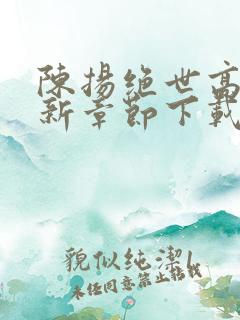 陳揚絕世高
新章節下載
貌似純潔l
未经同意禁止转载